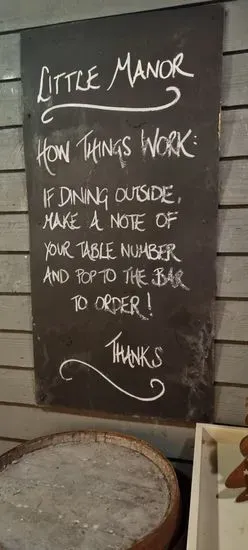 LITTLE MANOR
HOW THINGS WORK:
IF DINING OUTSIDE,
MAKE A NOTE OF
YOUR TABLE NUMBER
AND POP TO THE BAR
TO ORDER!
THANKS